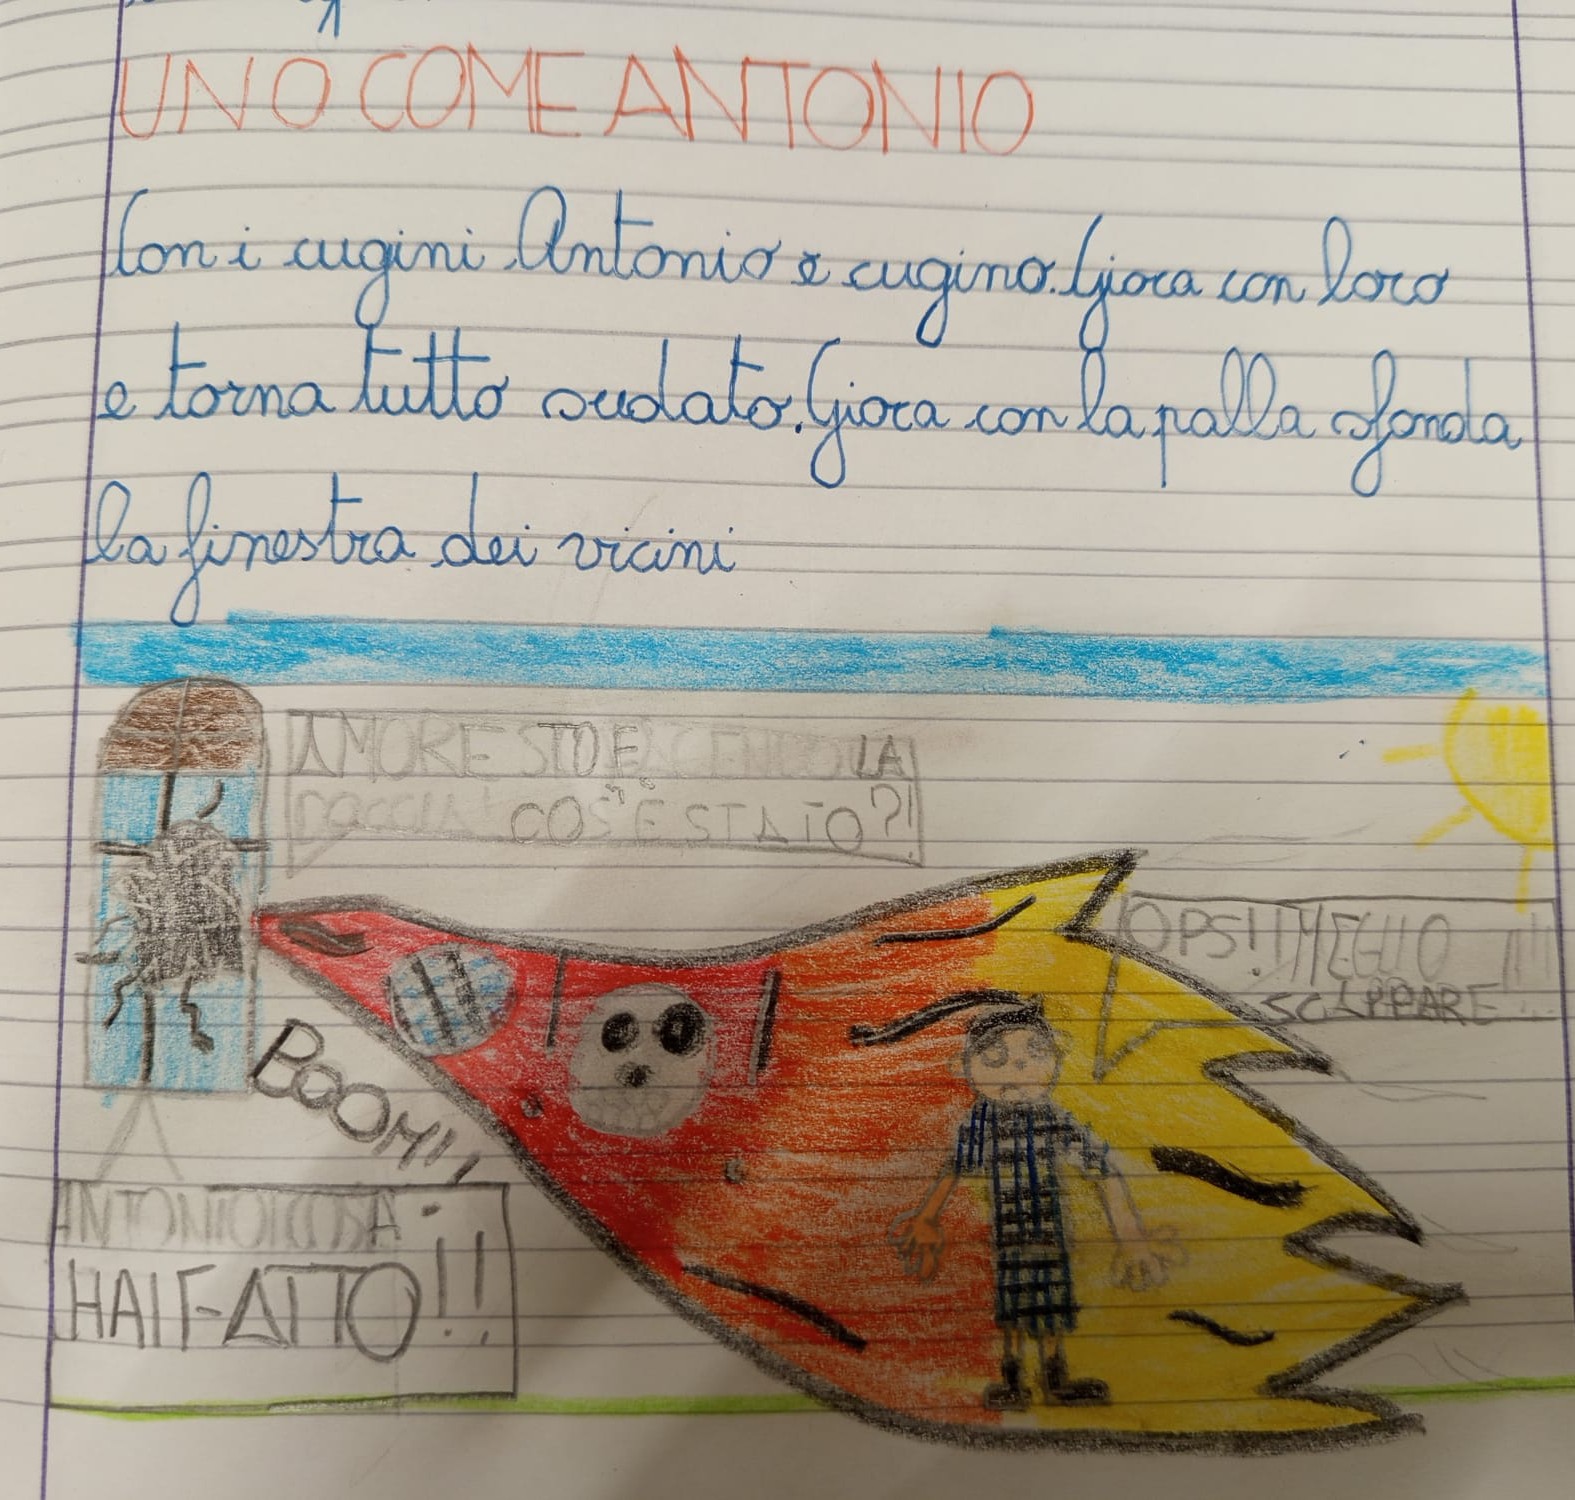 UNO COME ANTONIO
Con i cugini Antonio è cugino. Gioca con loro
e torna tutto sudato. Gioca con la palla sfonda
la finestra dei vicini
AMORE STO FACENDO LA
DOCCIA! COS'È STATO?!
OPS!! MEGLIO !!!
SCAPPARE...
BOOM!!
ANTONIO COSA
HAI FATTO!!